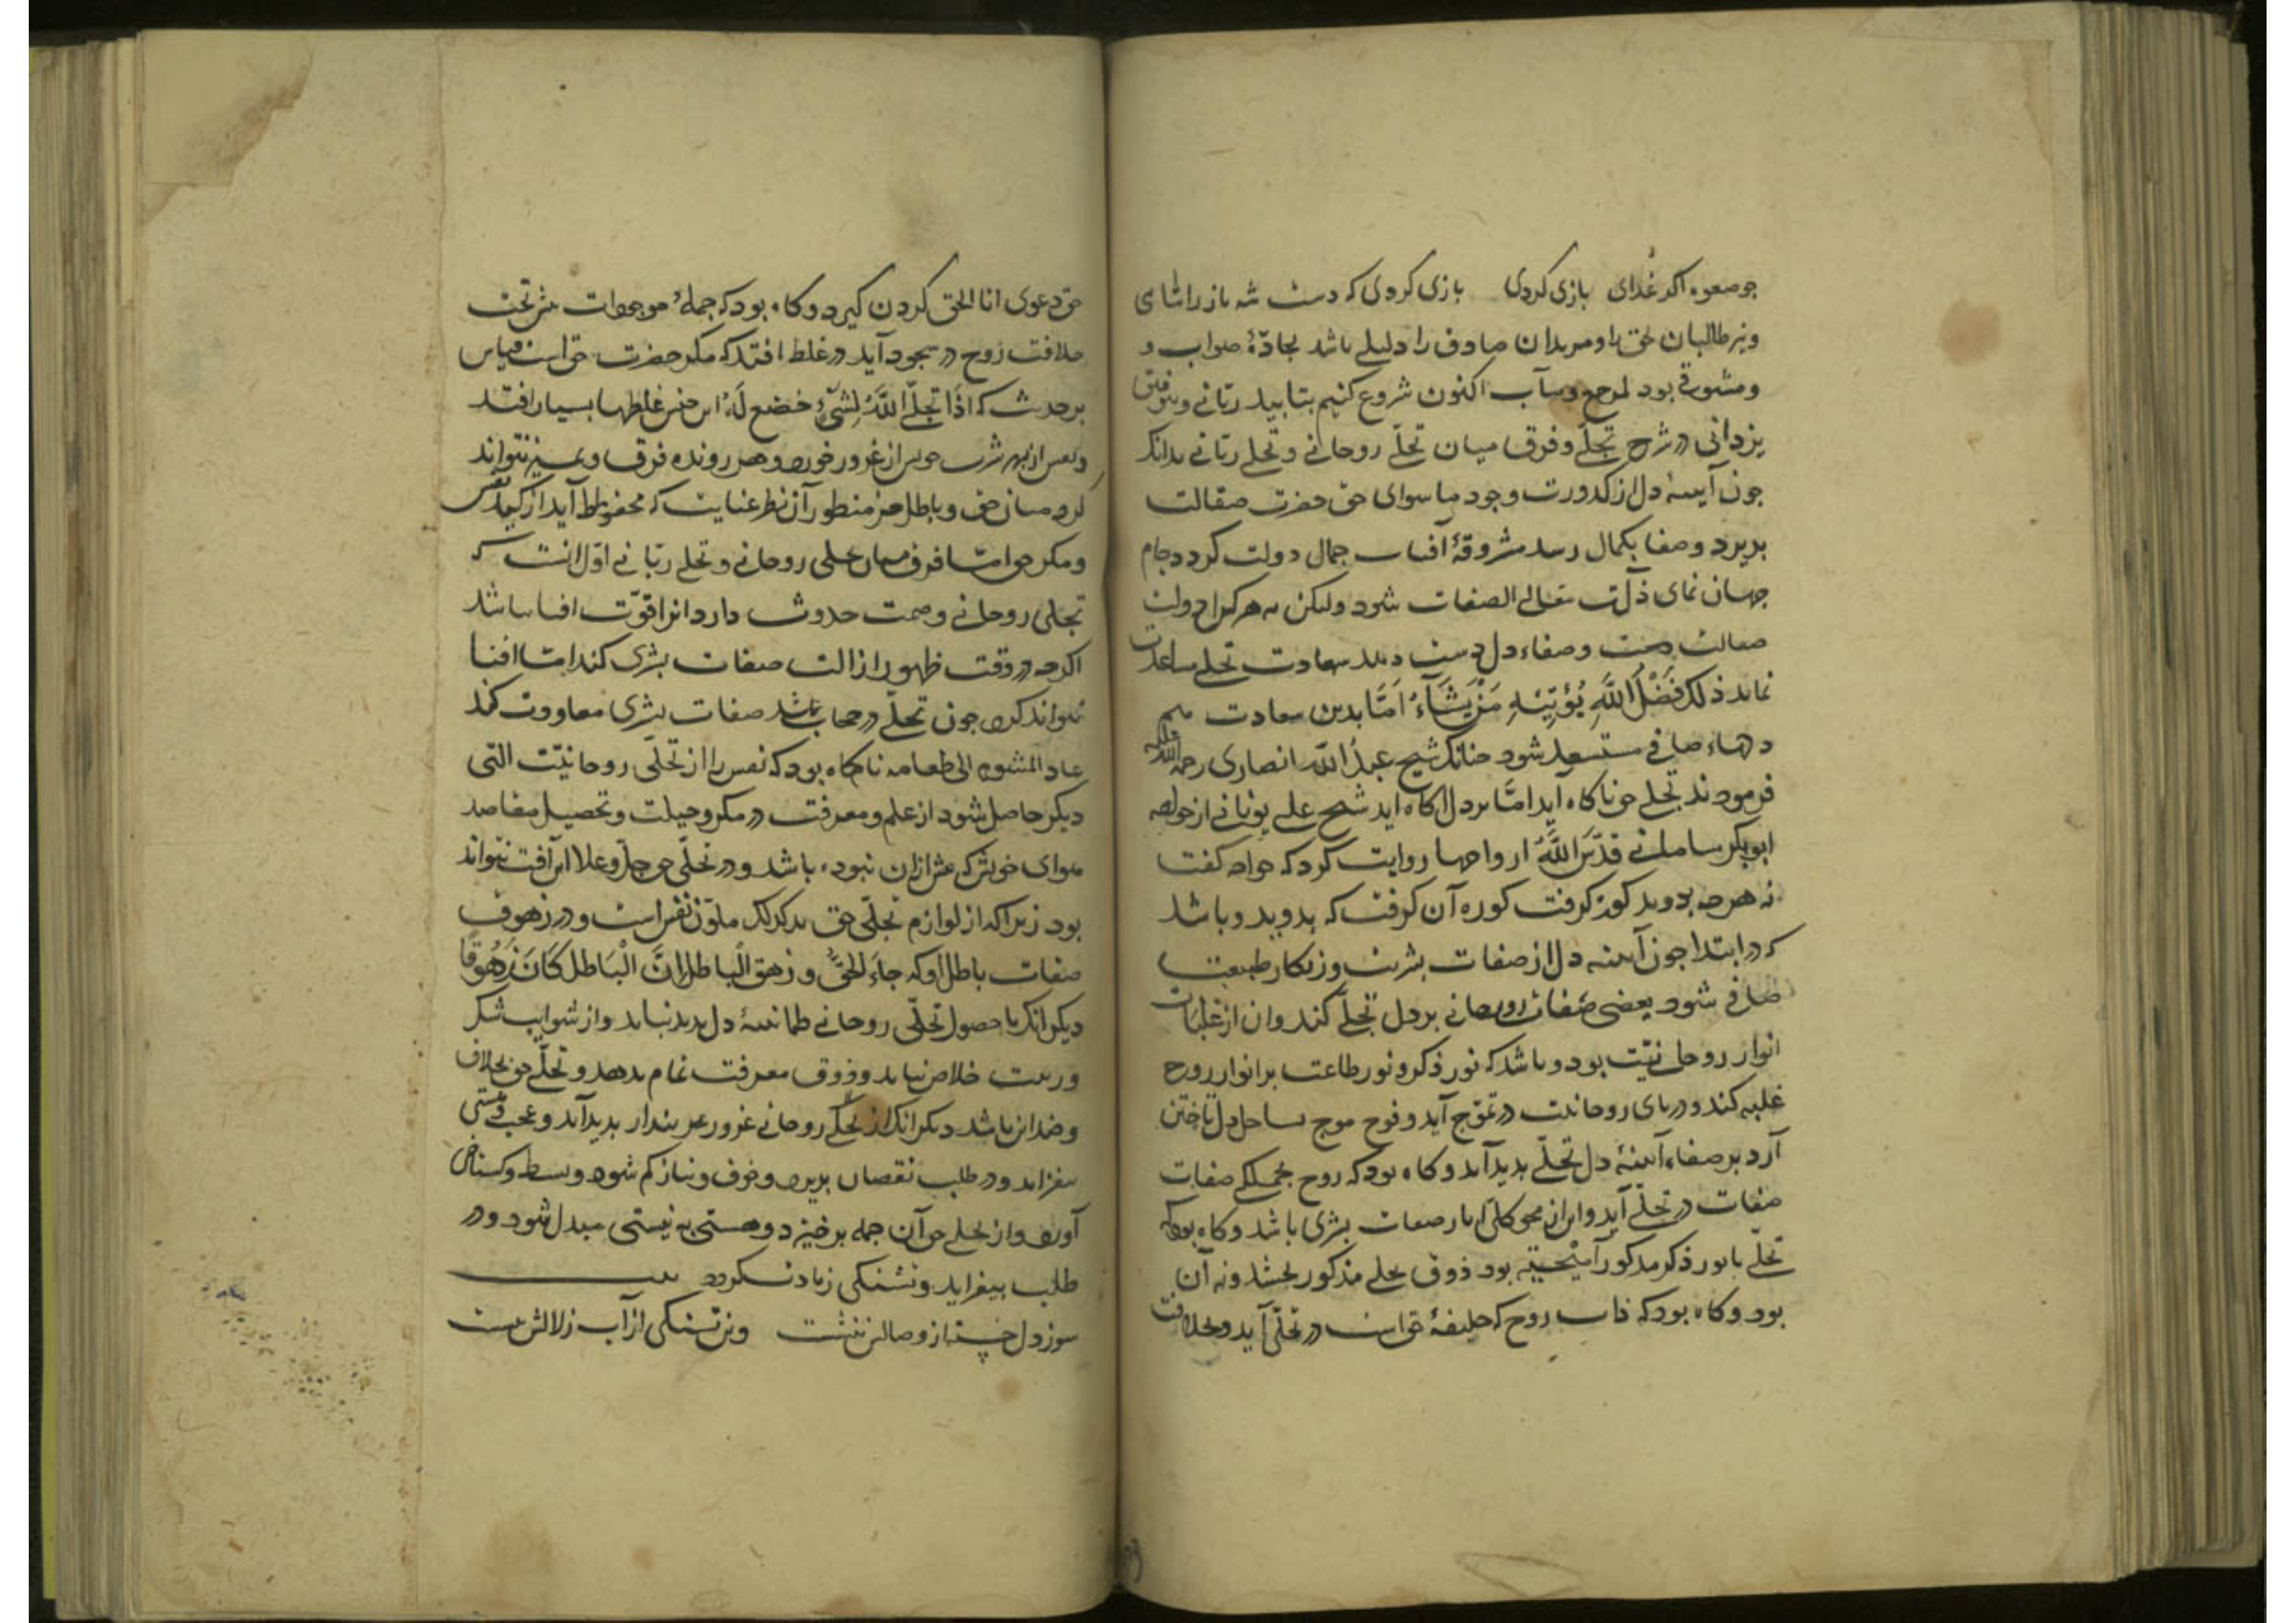 جو صعوه اکر غُدای بازی کردی بازی کردی که دست شه باز را شای
و نیز طالبان حق را و مریدان صادق را دلیلی باشد بجادّهٔ صواب و
و مشوقی بود لمرجع و مآب اکنون شروع کنیم بتایید ربّانی و بتوفیق
یزدانی در شرح تجلّی و فرق میان تجلّی روحانی و تجلی ربّانی بدانک
جون آینهٔ دل از کدورت وجود ما سوای حق حضرت صقالت
بذیرد و صفا بکمال رسد مشروقهٔ آفتاب جمال دولت کردد و جام
جهان نمای ذات متعالی الصفات شود ولیکن نه هر کرا دولت
صقالت و صفاء دل دست دهد سعادت تجلی مساعدت
نماید ذلک فَضْلُ اللَّهِ یُؤْتِیْهِ مَنْ یَشَآءُ امَّا بدین سعادت هم
دلهاء صافی مستسعد شود جنانک شیخ عبدُ اللَّه انصاری رحمة الله علیه
فرمودند تجلی حق ناکاه آید امَّا بر دل اکاه اید شیخ علی بونانی از خواجه
ابوبکر قدّسَ اللَّهُ ارواحها روایت کرد که خواجه کفت
نه هر جه بدوید کور کرفت کور آن کرفت که بدوید و باشد
که در ابتدا جون آینه دل از صفات بشریت و زنکار طبیعت
صافی شود بعضی صفات روحانی بر دل تجلّی کند و ان از غلبات
انوار روحانیّت بود و باشد که نور ذکر و نور طاعت بر انوار روح
غلبه کند و دریای روحانیت در تموّج آید و فوج موج بساحل دل تاختن
آرد بر صفاء آینهٔ دل تجلّی بدید آید و کاه بود که روح بجملکی صفات
صفات در تجلّی آید و این از محو کلّی اثار صفات بشری باشد و کاه بود که
تجلّی با نور ذکر مذکور آمیخته بود ذوق تجلی مذکور بخشد و نه آن
بود و کاه بود که ذات روح که خلیفهٔ حق است در تجلّی آید و بخلافت
حق دعوی انا الحق کردن کیرد و کاه بود که جملهٔ موجودات بیش تخت
خلافت روح در سجود آید در غلط افتد که مکر حضرت حق است قیاس
بر حدیث که اذَا تجلّی اللَّهُ لِشَیْءٍ خضع لَهُ این جنس غلطها بسیار افتد
و نفس از بهر شرب خویش از غرور خورد و هر رونده فرق و تمییز نتواند
کرد میان حق و باطل جز منظور آن نظر عنایت که محفوظ آید از کید نفس
و مکر حق امّا فرق میان تجلی روحانی و تجلی ربّانی اوّل انست که
تجلی روحانی وصمت حدوث دارد انرا قوّت افنا نباشد
اکرجه در وقت ظهور ازالت صفات بشری کند امّا افنا
نتواند کرد جون تجلّی در حجاب باشد صفات بشری معاودت کند
عاد المشوم الی طعامه ناکاه بود که نفس را از تجلّی روحانیّت التی
دیکر حاصل شود از علم و معرفت در مکر و حیلت و تحصیل مقاصد
هوای خویش که بیش ازان نبوده باشد و در تجلّی حق جلّ و علا این آفت نتواند
بود زیرا که از لوازم تجلّی حق تدکدک ملوّن نفس است و در زهوق
صفات باطل او که جاءَ الحقُّ و زهق الْباطل انَّ الْبَاطل کَانَ زَهُوقًا
دیکر انک با حصول تجلّی روحانی طمانینهٔ دل بدید نیاید و از شوایب شک
و ریبت خلاص نیابد و ذوق معرفت تمام ندهد و تجلّی حق بخلاف
و ضد این باشد دیکر انک از تجلّی روحانی غرور و بندار بدید آید و عجب و هستی
بیفزاید و در طلب نقصان بدیرد و خوف و نیاز کم شود و بسط و کستاخی
آورد و از تجلی حق آن جمله برخیزد و هستی به نیستی مبدل شود و درد
طلب بیفزاید و تشنکی زیادت کردد بیت
سوز دل خسته از وصالش ننشست وین تشنکی از آب زلالش ننشست